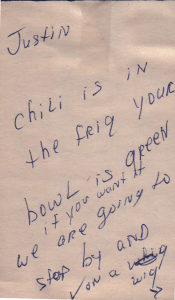 Justin
chili is in
the friq your
bowl is green
if you want it
we are going to
stop by and
on a wig